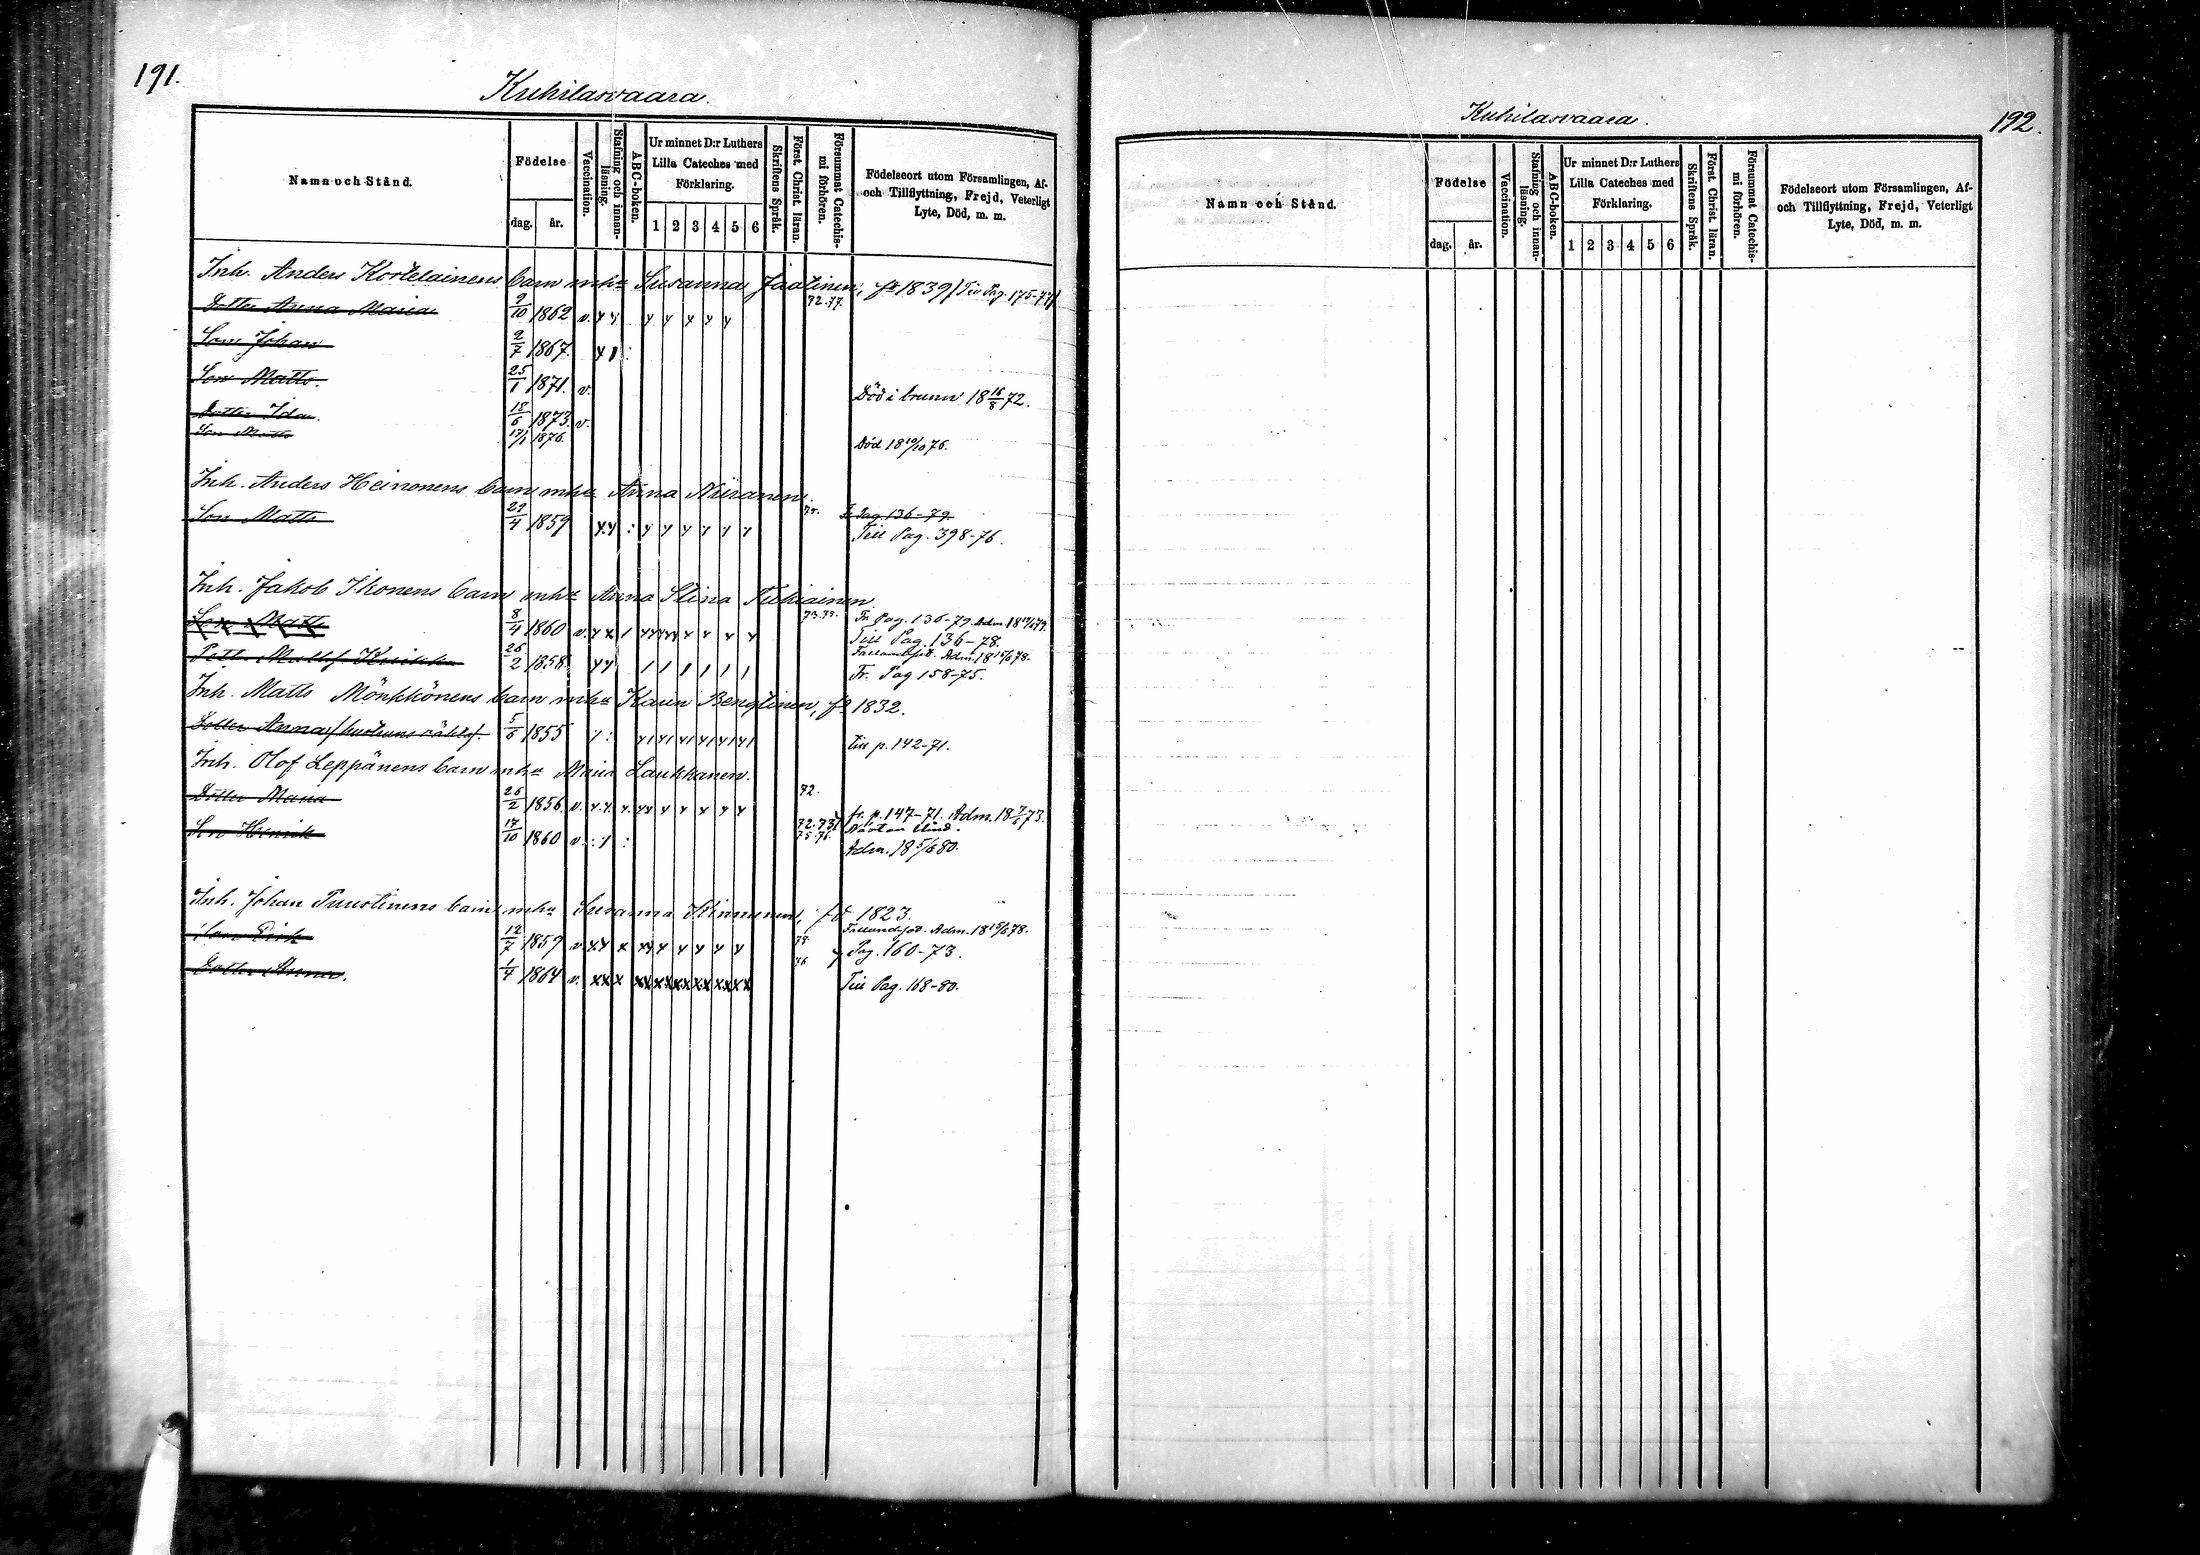 191.
Kuhilasvaara.
Namn och Stånd.
Födelse
dag. år.
Vaccination.
Stafning och innanläsning.
ABC-boken.
Ur minnet D:r Luthers
Lilla Cateches med
Förklaring.
1 2 3 4 5 6
Skriftens Språk.
Först. Christ. läran.
Försummat Catechismi förhören.
Födelseort utom Församlingen, Af-
och Tillflyttning, Frejd, Veterligt
Lyte, Död, m. m.
Inh. Anders Kortelainens barn mhu Susanna Jaatinen, fd 1839 (Till Pag. 175-77)
Dotter Anna Maria 9/10 1862 v. 72.77.
Son Johan 2/7 1867.
Son Matts 25/1 1871. v. Död i brunn 18 16/8 72.
Dotter Ida 18/6 1873. v.
Son Matts 17/1 1876. Död 18 10/10 76.
Inh. Anders Heinonens barn mhu Anna Niiranen.
Son Matts 21/4 1859 Fr Pag 136-79.
Till Pag. 398-76.
Inh. Jakob Ikonens barn mhu Anna Stina
Son Matts 8/4 1860 v. 73.75. Fr Pag. 136-79.
Till Pag. 136-78.
26/2 1858 Adm. 18 15/6 78.
Fr. Pag 158-75.
Inh. Matts Mönkkönens barn mhu Karin Bengtinen, fd 1832.
Dotter Anna 5/6 1855 Till p. 142-71.
Inh. Olof Leppänens barn mhu Maria Laukkanen.
Dotter Maria 26/2 1856. v. 72. fr. p. 147-71. Adm. 18 7/6 73.
Son Henrik 17/10 1860 v. 72.73. 75.76. Nästan blind.
Adm. 18 5/6 80.
Inh. Johan Puustinens barn mhu Susanna Kinnunen, fd 1823.
Son Erik 12/7 1859 v. 78. Adm. 18 15/6 78.
Pag. 160-73.
Dotter Anna 1/4 1864 v. 76 Till Pag. 168-80.
Kuhilasvaara.
192.
Namn och Stånd.
Födelse
dag. år.
Vaccination.
Stafning och innanläsning.
ABC-boken.
Ur minnet D:r Luthers
Lilla Cateches med
Förklaring.
1 2 3 4 5 6
Skriftens Språk.
Först. Christ. läran.
Försummat Catechismi förhören.
Födelseort utom Församlingen, Af-
och Tillflyttning, Frejd, Veterligt
Lyte, Död, m. m.